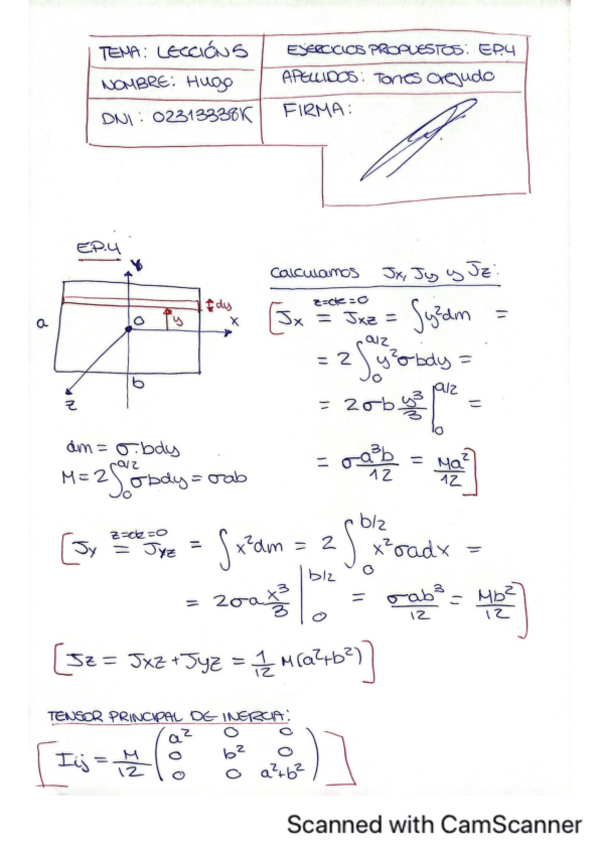 TEMA: LECCIÓN 5
EJERCICIOS PROPUESTOS: EP.4
NOMBRE: Hugo
APELLIDOS: Torres Orejudo
DNI: 02313338K
FIRMA:
EP.4
Y
dy
a
O
y
x
b
z
dm = σ·bdy
M = 2∫₀^{a/2} σbdy = σab
Calculamos Jx, Jy y Jz:
[Jx =^{z=cte=0} Jxz = ∫y²dm =
= 2∫₀^{a/2} y²σbdy =
= 2σb y³/3 |₀^{a/2} =
= σa³b/12 = Ma²/12]
[Jy =^{z=cte=0} Jyz = ∫x²dm = 2∫₀^{b/2} x²σadx =
= 2σa x³/3 |₀^{b/2} = σab³/12 = Mb²/12]
[Jz = Jxz + Jyz = 1/12 M(a²+b²)]
TENSOR PRINCIPAL DE INERCIA:
[Iij = M/12 (a² 0 0
0 b² 0
0 0 a²+b²)]
Scanned with CamScanner